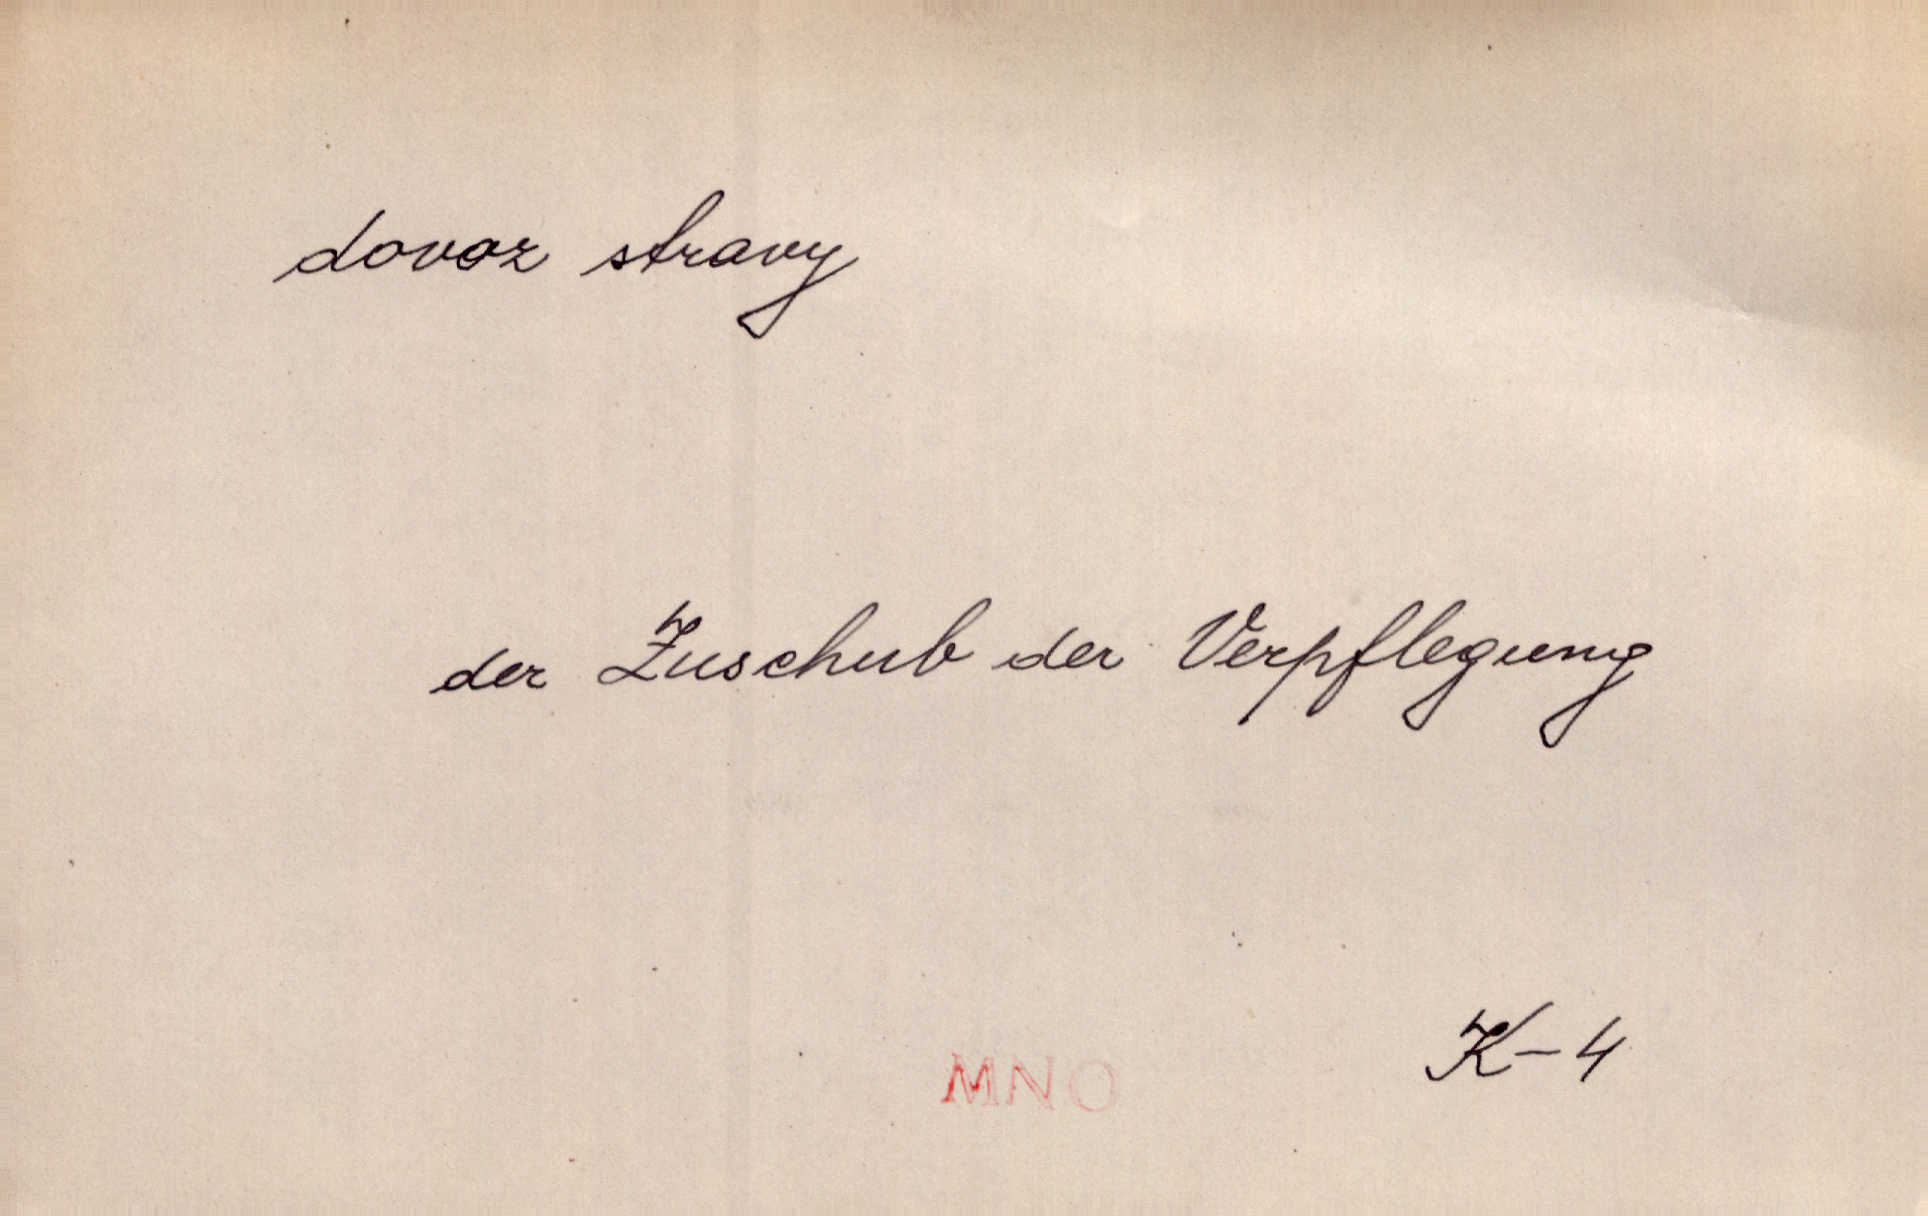 dovoz stravy
der Zuschub der Verpflegung
K-4
MNO